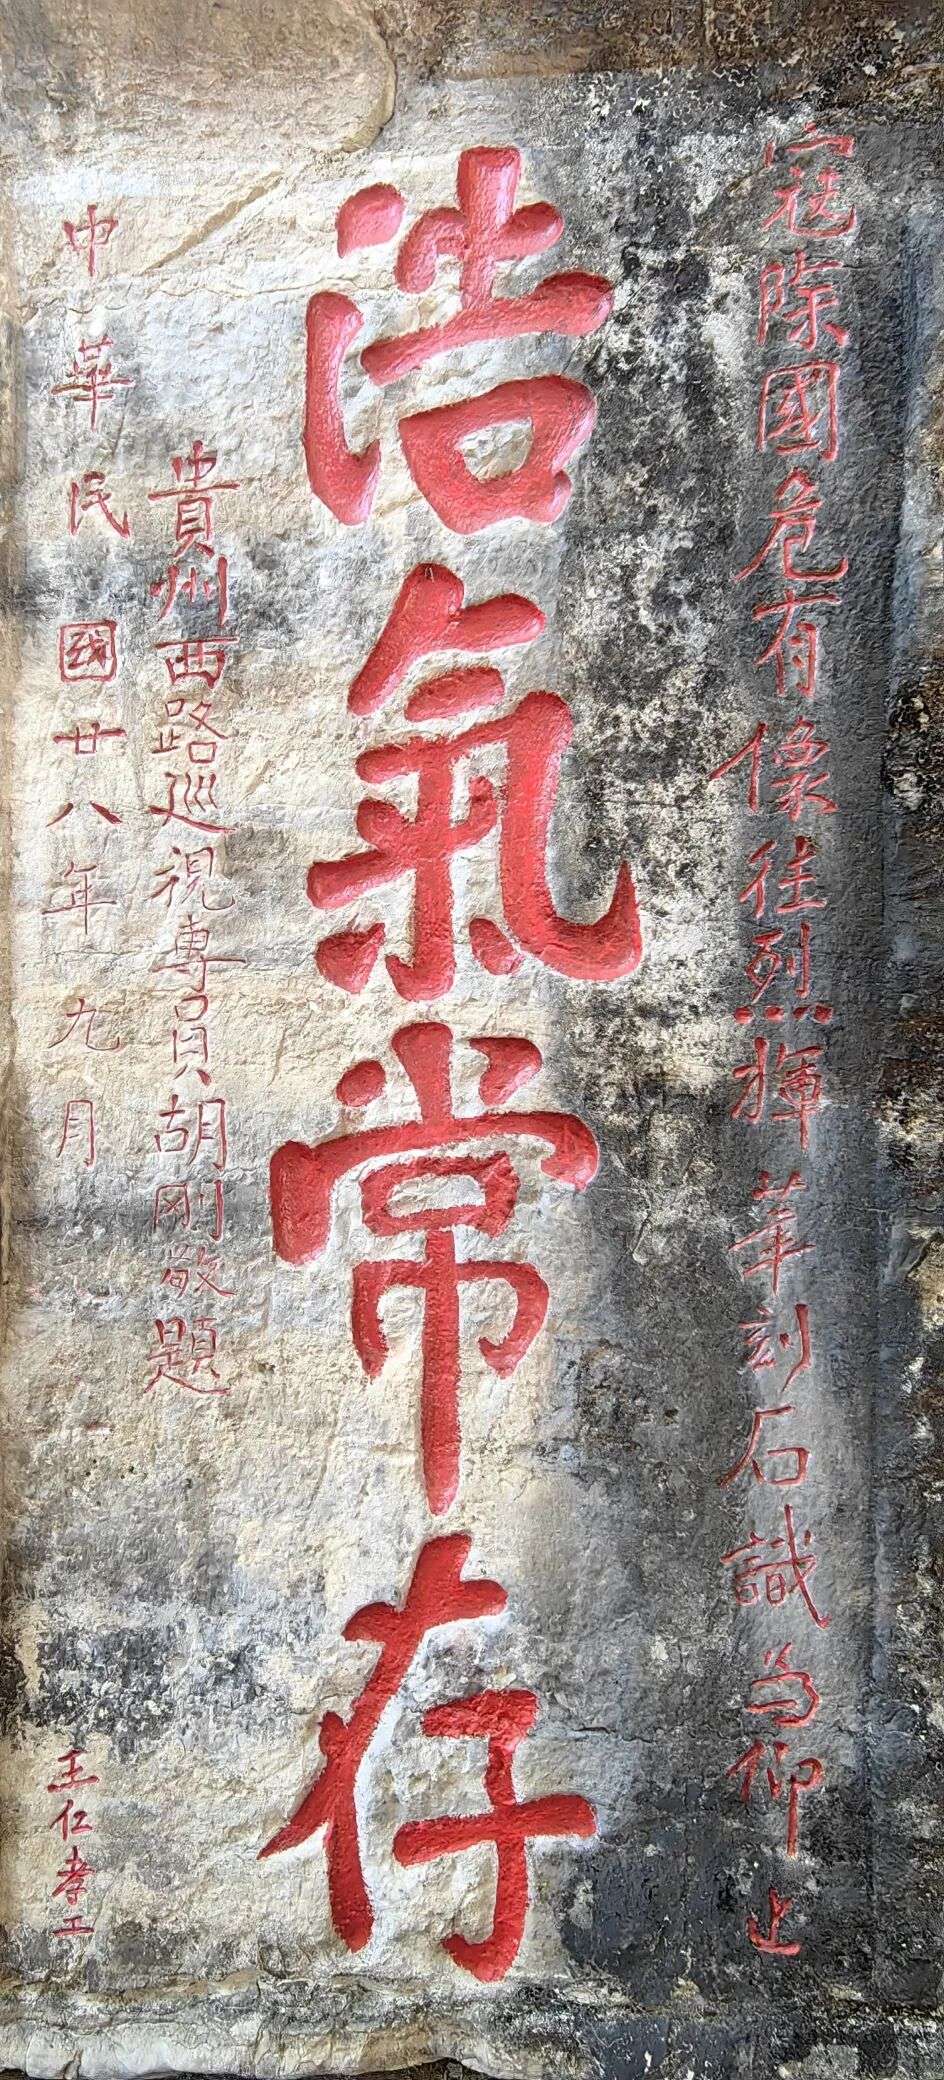 寇除國危有懷往烈揮華刻石識為仰止
浩氣常存
貴州西路巡視專員胡剛敬題
中華民國廿八年九月
王仁孝工